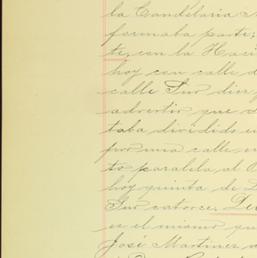 la Candelaria
formaba parte;
te, con la Haci
hoy con calle d
calle Sur diez
advertir que
taba dividida en
por una calle en
to paralela al O
hoy quinta de
Sur catorce. De
es el mismo que
José Martinez